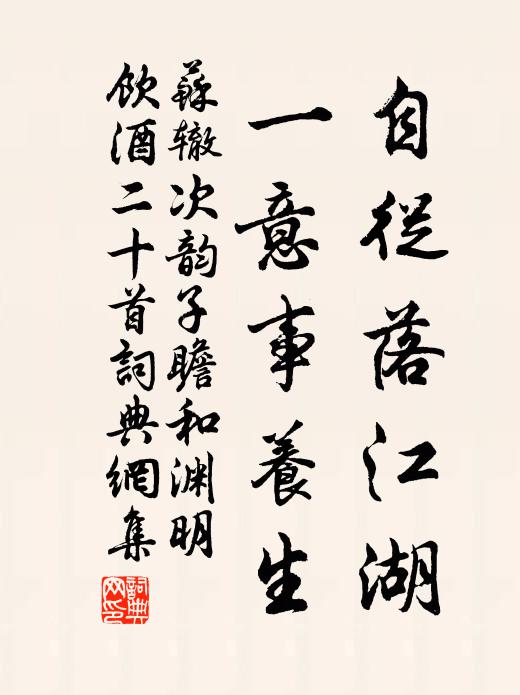 自從落江湖
一意事養生
蘇辙次韵子瞻和渊明
飲酒二十首詞典網集